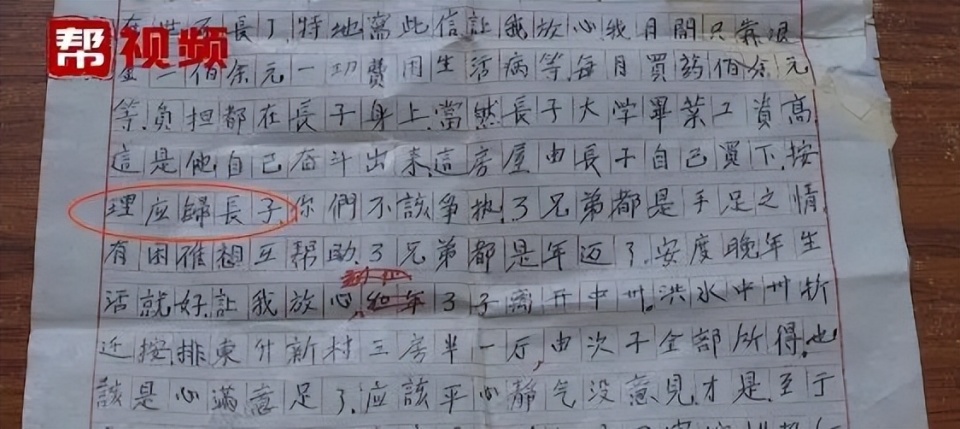 帮视频
在世不長了特地寫此信讓我放心我月間只靠退
金二佰余元一切費用生活病等,每月買药佰余元
等,负担都在長子身上,當然長子大学畢業工資高,
這是他自己奋斗出来這房屋由長子自己買下,按
理应歸長子,你們不該争执,3兄弟都是手足之情,
有困难相互帮助,3兄弟都是年迈了,安度晚年生
活就好,讓我放心,
3子离开中州,洪水中州拆
近按排東升新村三房半一厅,由次子全部所得,也
該是心滿意足了,应該平心静气没意見才是,至于